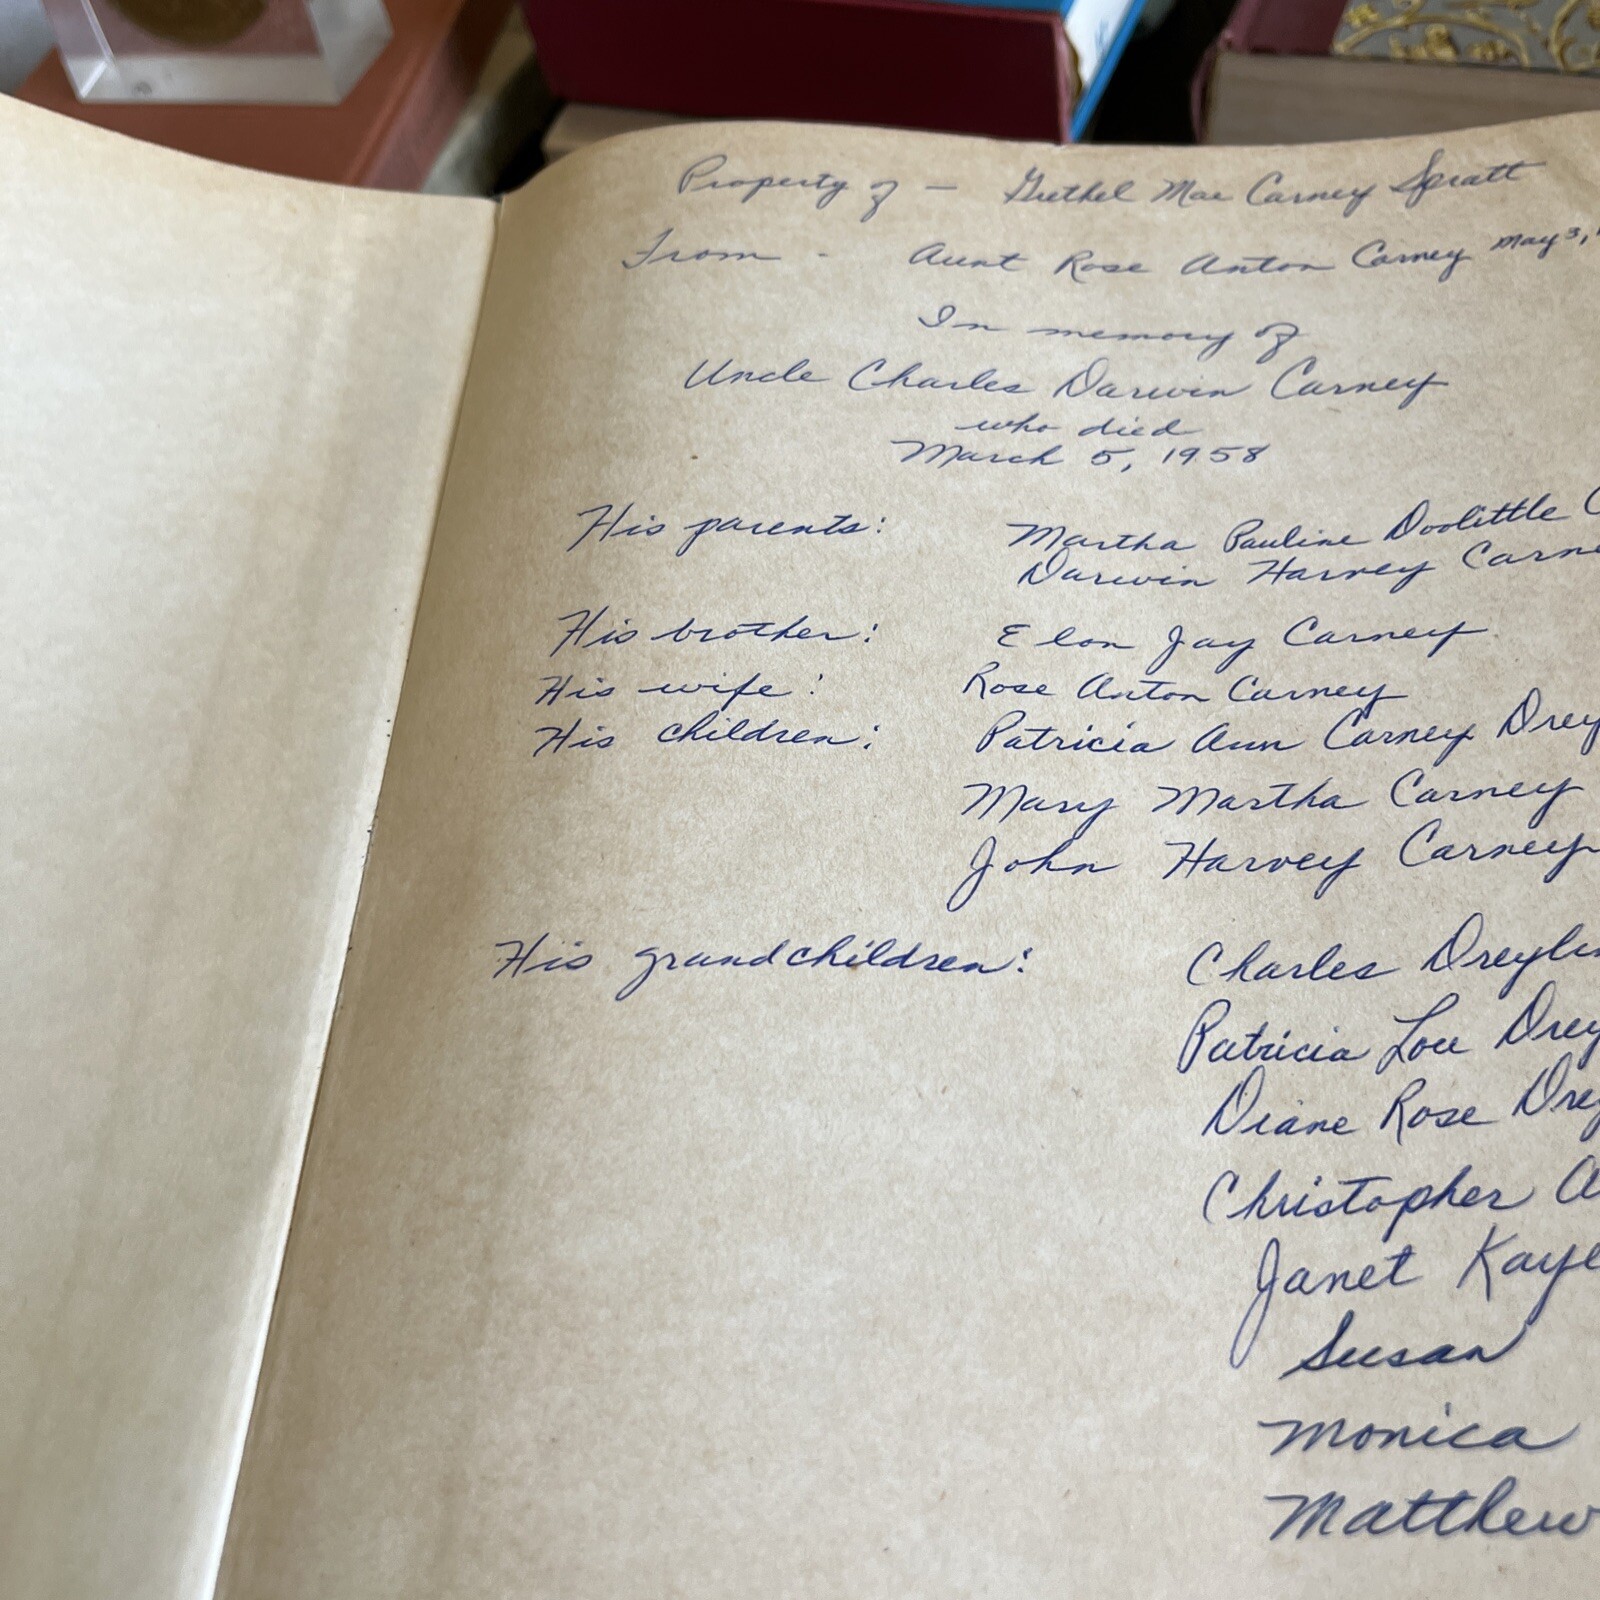 Property of - Grethel Mae Carney Spratt
From - Aunt Rose Anton Carney May 3,
In memory of
Uncle Charles Darwin Carney
who died
March 5, 1958
His parents: Martha Pauline Doolittle C
Darwin Harvey Carne
His brother: Elon Jay Carney
His wife: Rose Anton Carney
His children: Patricia Ann Carney Drey
Mary Martha Carney
John Harvey Carney
His grandchildren: Charles Dreylin
Patricia Lou Drey
Diane Rose Drey
Christopher A
Janet Kaye
Susan
Monica
Matthew